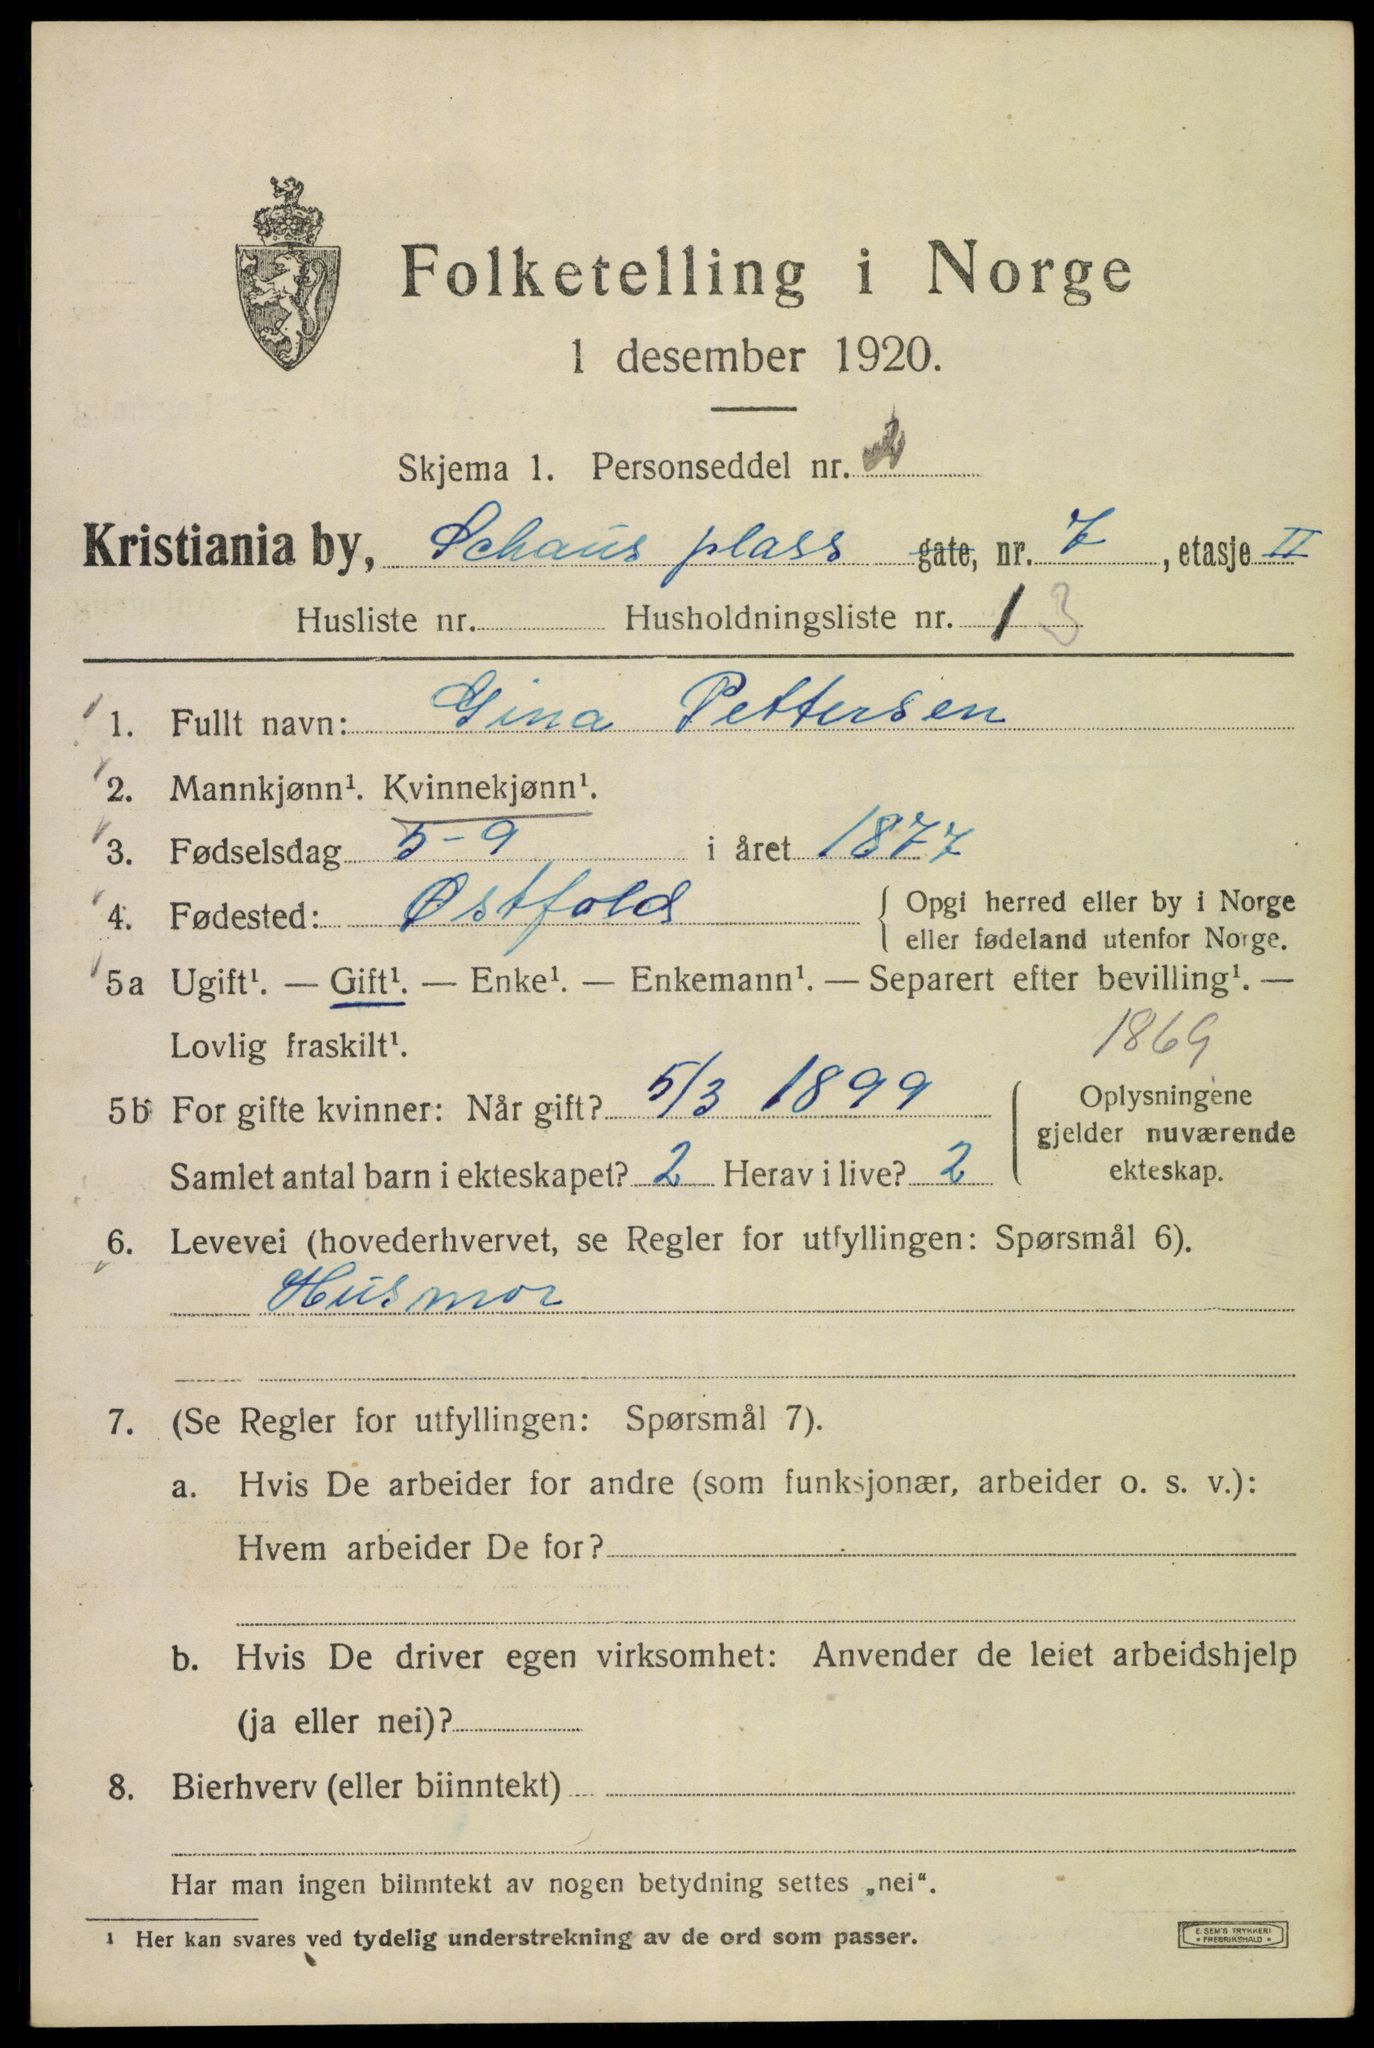 Folketelling i Norge
1 desember 1920.
Skjema 1. Personseddel nr. 2
Kristiania by, Schaus plass gate, nr. 7, etasje II
Husliste nr. Husholdningsliste nr. 1 3
1. Fullt navn: Gina Pettersen
2. Mannkjønn¹. Kvinnekjønn¹.
3. Fødselsdag 5-9 i året 1877
4. Fødested: Østfold { Opgi herred eller by i Norge
eller fødeland utenfor Norge.
5a Ugift¹. — Gift¹. — Enke¹. — Enkemann¹. — Separert efter bevilling¹. —
Lovlig fraskilt¹. 1869
5b For gifte kvinner: Når gift? 5/3 1899
Samlet antal barn i ekteskapet? 2 Herav i live? 2
Oplysningene
gjelder nuværende
ekteskap.
6. Levevei (hovederhvervet, se Regler for utfyllingen: Spørsmål 6).
Husmor
7. (Se Regler for utfyllingen: Spørsmål 7).
a. Hvis De arbeider for andre (som funksjonær, arbeider o. s. v.):
Hvem arbeider De for?
b. Hvis De driver egen virksomhet: Anvender de leiet arbeidshjelp
(ja eller nei)?
8. Bierhverv (eller biinntekt)
Har man ingen biinntekt av nogen betydning settes „nei“.
¹ Her kan svares ved tydelig understrekning av de ord som passer.
E. SEM'S TRYKKERI
FREDRIKSHALD